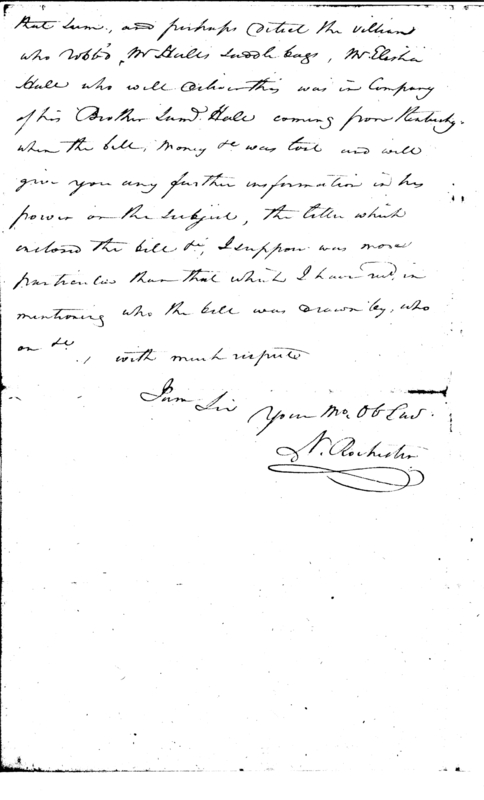 that sum, and perhaps detect the villian
who robb'd Mr Halls saddle bags, Mr Elisha
Hall who will deliver this was in Company
of his Brother Saml. Hall coming from Kentucky
when the bill, money &c was lost and will
give you any further information in his
power on the subject, the letter which
inclosed the bill &c, I suppose was more
particular than that which I have recd. in
mentioning who the bill was drawn by, who
on &c, with much respect
I am Sir Your Mo. Ob Serv.
N. Rochester